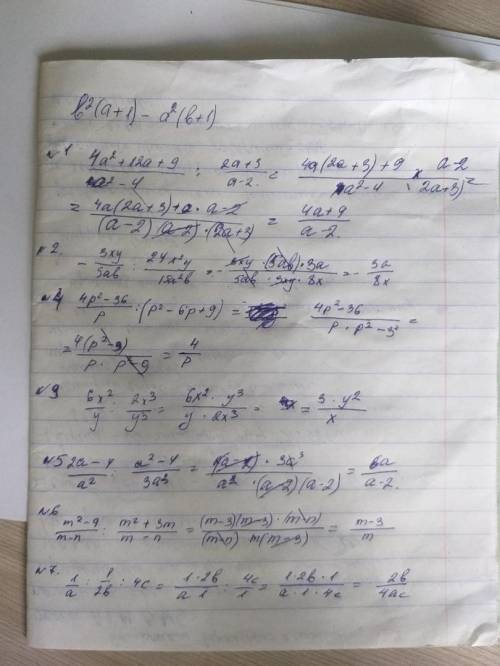 b²(a+1) - a²(b+1)
№1 (4a²+12a+9)/(a²-4) : (2a+3)/(a-2) = (4a(2a+3)+9)/(a²-4) × (a-2)/(2a+3)²
= (4a(2a+3)+a · a-2)/((a-2)(a-2) · (2a+3)) = (4a+9)/(a-2)
№2. - 3xy/5ab : 24x²y/15a²b = - (3xy · (5ab) · 3a)/(5ab · 3xy · 8x) = - 3a/8x
№4 (4p²-36)/p : (p²-6p+9) = (4p²-36)/(p · p²-3²) =
= 4(p²-9)/(p · p²-9) = 4/p
№9 6x²/y : 2x³/y³ = (6x² · y³)/(y · 2x³) = = (3 · y²)/x
№5 (2a-4)/a² : (a²-4)/3a³ = · 3a³/(a² · (a-2)(a-2)) = 6a/(a-2)
№6 (m²-9)/(m-n) : (m²+3m)/(m-n) = ((m-3)(m-3) · (m-n))/((m-n) m(m-3)) = (m-3)/m
№7. 1/a : 1/2b : 4c = (1·2b)/(a·1) : 4c/1 = (1·2b·1)/(a·1·4c) = 2b/4ac